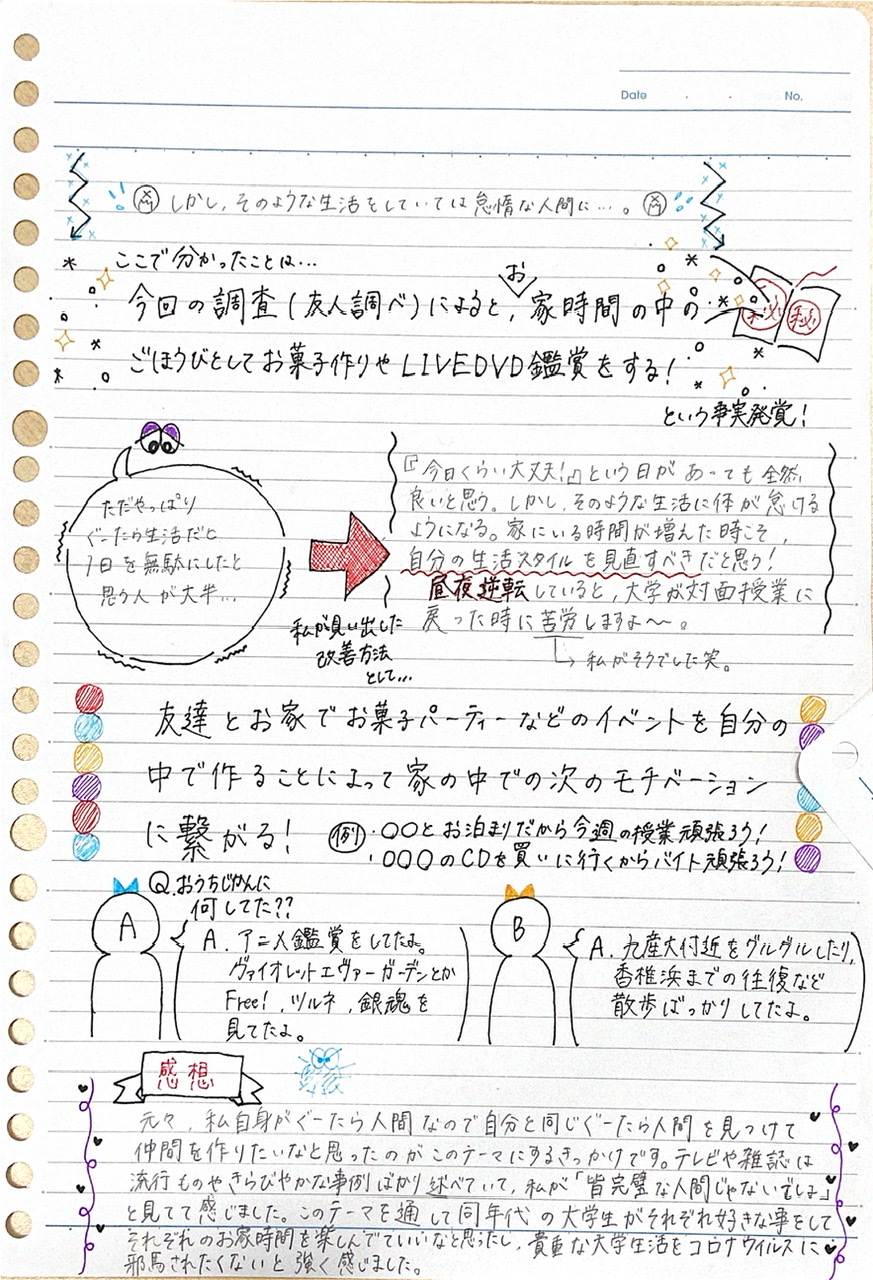 Date ・ ・ No.
しかし、そのような生活をしていては怠惰な人間に…。
ここで分かったことは…
今回の調査(友人調べ)によると、お家時間の中の
ごほうびとしてお菓子作りやLIVEDVD鑑賞をする!
秘 秘
という事実発覚!
ただやっぱり
ぐーたら生活だと
1日を無駄にしたと
思う人が大半…
私が見い出した
改善方法
として…
『今日くらい大丈夫!』という日があっても全然
良いと思う。しかし、そのような生活に体が怠ける
ようになる。家にいる時間が増えた時こそ、
自分の生活スタイルを見直すべきだと思う!
昼夜逆転していると、大学が対面授業に
戻った時に苦労しますよ〜。
→私がそうでした笑。
友達とお家でお菓子パーティーなどのイベントを自分の
中で作ることによって家の中での次のモチベーション
に繋がる!
例 ・〇〇とお泊まりだから今週の授業頑張ろう!
・〇〇〇のCDを買いに行くからバイト頑張ろう!
Q.おうちじかんに
何してた??
A
A. アニメ鑑賞をしてたよ。
ヴァイオレットエヴァーガーデンとか
Free!、ツルネ、銀魂を
見てたよ。
B
A. 九産大付近をグルグルしたり、
香椎浜までの往復など
散歩ばっかりしてたよ。
感想
元々、私自身がぐーたら人間なので自分と同じぐーたら人間を見つけて
仲間を作りたいなと思ったのがこのテーマにするきっかけです。テレビや雑誌は
流行ものやきらびやかな事例ばかり述べていて、私が「皆完璧な人間じゃないでしょ」
と見てて感じました。このテーマを通して同年代の大学生がそれぞれ好きな事をして
それぞれのお家時間を楽しんでていいなと思ったし、貴重な大学生活をコロナウイルスに
邪馬されたくないと強く感じました。